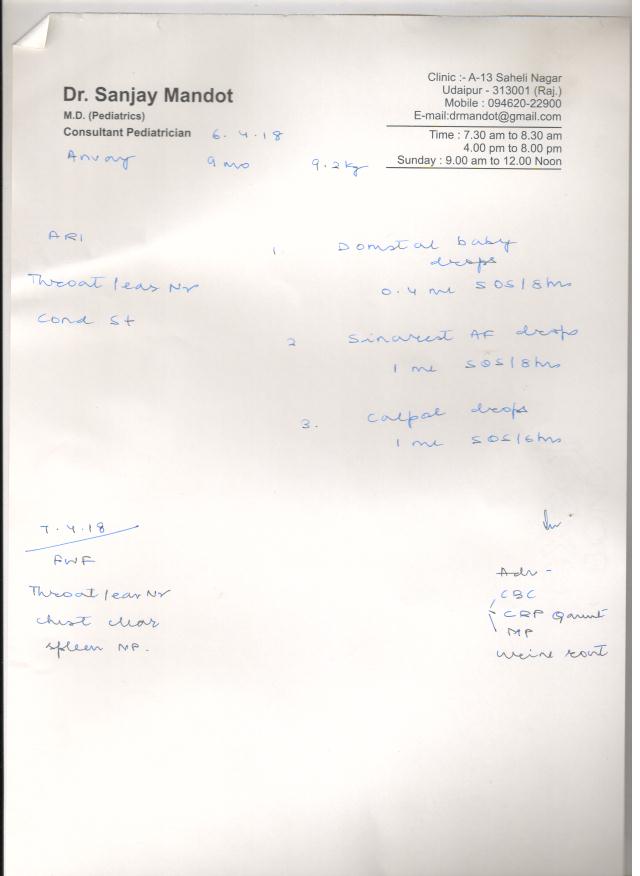 Dr. Sanjay Mandot
M.D. (Pediatrics)
Consultant Pediatrician
Clinic :- A-13 Saheli Nagar
Udaipur - 313001 (Raj.)
Mobile : 094620-22900
E-mail:drmandot@gmail.com
Time : 7.30 am to 8.30 am
4.00 pm to 8.00 pm
Sunday : 9.00 am to 12.00 Noon
6.4.18
9 mo 9.2kg
ARI
Throat/ears Nr
Cond St
1. Domstal baby
drops
0.4 ml SOS/8hrs
2 Sinarest AF drops
1 ml SOS/8hrs
3. Calpol drops
1 ml SOS/6hrs
7.4.18
FWF
Throat/ear Nr
chest clear
spleen NP.
Adv -
CBC
CRP Quant
MP
urine rout